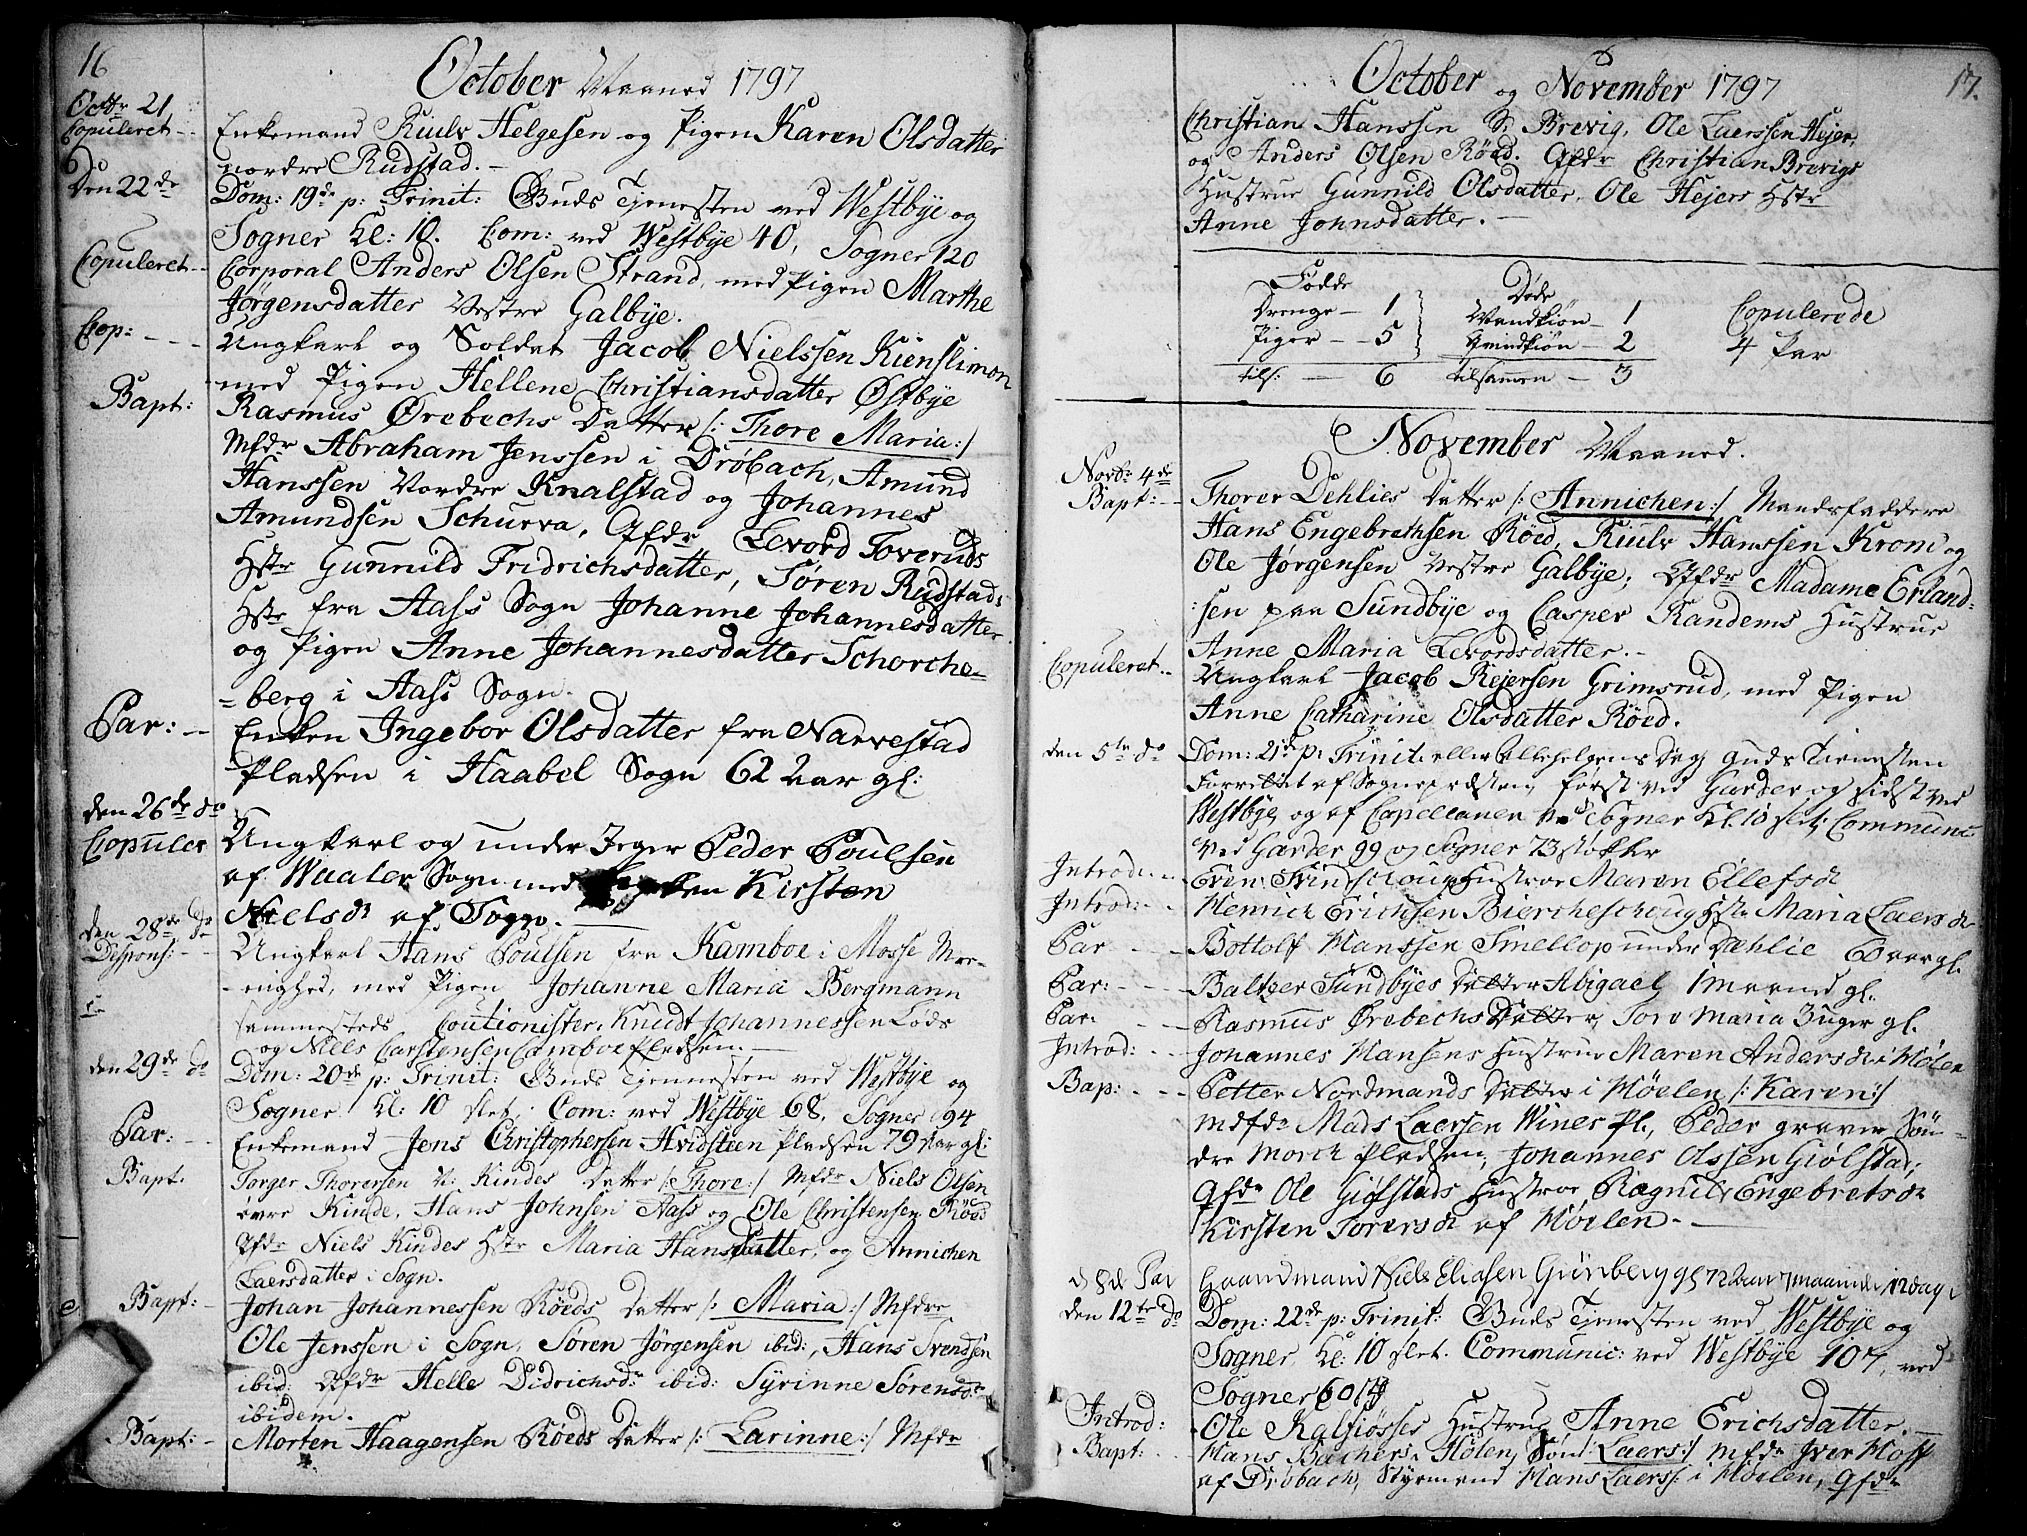 16
October Maaned 1797
Octbr 21
Copuleret -- Enkemand Riulv Helgesen og Pigen Karen Olsdatter
nordre Rudstad. -
Den 22de Dom: 19de p: Trinit: Guds Tjenesten ved Westbye og
Sogner Kl: 10. Com: ved Westbye 40, Sogner 120
Copuleret -- Corporal Anders Olsen Strand, med Pigen Marthe
Jørgensdatter Vestre Galbye.
Cop: --- Ungkarl og Soldat Jacob Nielssen Kienslimon
med Pigen Hellene Christiansdatter Østbye
Bapt: Rasmus Ørebechs Datter /: Thore Maria :/
Mfdr Abraham Jenssen i Drøbach, Amund
Hanssen Nordre Knalstad og Johannes
Amundsen Schurva, Qfdr Levord Toveruds
Hstr Gunnild Fridrichsdatter, Søren Rudstads
Hstr fra Aass Sogn Johanne Johannesdatter
og Pigen Anne Johannesdatter Schorche-
-berg i Aass Sogn.
Par: -- Enken Ingebor Olsdatter fra Narvestad
Pladsen i Haabel Sogn 62 Aar gl:
den 26de do
Copuler Ungkarl og under Jeger Peder Poulsen
af Waaler Sogn med Kirsten
Nielsdr af Sogn. -
den 28de do
Despons: -- Ungkarl Hans Poulsen fra Kamboe i Mosse Me-
-nighed, med Pigen Johanne Maria Bergmann
sammesteds Coutionister, Knudt Johannessen Lods
og Niels Carstensen Camboe Pladsen. -
den 29de do Dom: 20de p: Trinit: Guds Tjennesten ved Westbye og
Sogner Kl: 10 slet, Com: ved Westbye 68, Sogner 94
Par: -- Enkemand Jens Christophersen Hvidsteen Pladsen 79 Aar gl:
Bapt. Torger Thorersen N: Kindes Datter /: Thore :/ Mfdr Niels Olsen
øvre Kinde, Hans Johnsen Aass og Ole Christensen Røed
Qfdr Niels Kindes Hstr Maria Hansdatter, og Annichen
Laersdatter i Sogn.
Bapt: - Johan Johannessen Røeds Datter /: Maria :/ Mfdre
Ole Jenssen i Sogn, Søren Jørgensen ibid:, Hans Svendsen
ibid: Qfdr Helle Didrichsdr ibid: Syrinne Sørensdr
ibidem.
Bapt: - Morten Haagensen Røeds Datter /: Larinne :/ Mfdr
17.
October og November 1797
Christian Hanssen S: Brevig, Ole Laerssen Hejer,
og Anders Olsen Røed. Qfdr Christian Brevigs
Hustrue Gunnild Olsdatter, Ole Hejers Hstr
Anne Johnsdatter. -
Fødde Døde
Drenge - 1 Mandkiøn - 1 Copulerede
Piger -- 5 Qvindkiøn - 2 4 Par
tils: -- 6 tilsammen - 3
November Maaned.
Novbr 4de
Bapt: -- Thorer Dehlies Datter /: Annichen :/ Mandsfaddere
Hans Engebrethsen Røed, Riulv Hanssen Krom og
Ole Jørgensen Vestre Galbye; Qfdr Madame Erland:
:sen paa Sundbye og Casper Randems Hustrue
Anne Maria Levordsdatter. -
Copuleret -- Ungkarl Jacob Rejersen Grimsrud, med Pigen
Anne Catharine Olsdatter Røed.
den 5te do Dom: 21de p: Trinit: eller Allehelgens Dag Guds Tienesten
Forrettet af Sognepræsten først ved Garder og sidst ved
Westbye og af Capellanen ved Sogner Kl. 10 slet; Communic
ved Garder 99 og Sogner 73 støkker
Introd: -- Even Hustroe Maren Ellefsdr
Introd: -- Henrich Erichsen Biercheschoug Hstr Maria Laersdr
Par -- Bottolf Hanssen Smellop under Dæhlie 60 aar gl.
Par: --- Baltzer Sundbyes Datter Abigael 1 maaned gl.
Par. Rasmus Ørebechs Datter, Tore Maria 3 uger gl.
Introd: -- Johannes Hansens Hustrue Maren Andersdr i Hølen
Bap: --- Petter Nordmands Datter i Høelen /: Karen :/
mdfdr Mads Laersen Wines Pl., Peder graver Søn-
dre Morch Pladsen, Johannes Olssen Giølstad;
Qfdr Ole Giølstads Hustroe Ragnild Engebretsdr
Kirsten Torersdr af Høelen. -
d 8de Par Gaardmand Niels Eliasen Grünberg gl 72 Aar 7 maaneder 12 dage
den 12te do Dom: 22de p: Trinit: Guds Tjenesten ved Westbye og
Sogner, Kl: 10 slet. Communic: ved Westbye 107, ved
Sogner 60
Introd: Ole Kalsiøsses Hustrue Anne Erichsdatter. -
Bapt: Hans Bachers i Hølen Søn /: Laers :/ Mfdr Iver Hoff
af Drøbach, Styrmand Hans Laers: i Høelen, Qfdr